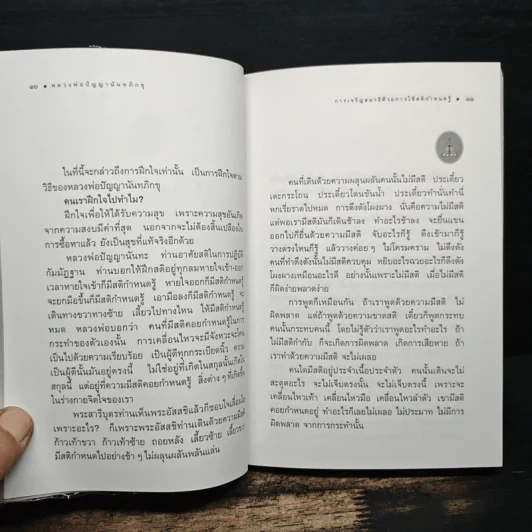 ๑๐ ● หลวงพ่อปัญญานันทภิกขุ
ในที่นี้จะกล่าวถึงการฝึกใจเท่านั้น เป็นการฝึกใจตาม
วิธีของหลวงพ่อปัญญานันทภิกขุ
คนเราฝึกใจไปทำไม?
ฝึกใจเพื่อให้ได้รับความสุข เพราะความสุขอันเกิด
จากความสงบมีค่าที่สุด นอกจากจะไม่ต้องสิ้นเปลืองใน
การซื้อหาแล้ว ยังเป็นสุขที่แท้จริงอีกด้วย
หลวงพ่อปัญญานันทะ ท่านอาศัยสติในการปฏิบัติ
กัมมัฏฐาน ท่านบอกให้ฝึกสติอยู่ทุกลมหายใจเข้า-ออก
เวลาหายใจเข้าก็มีสติกำหนดรู้ หายใจออกก็มีสติกำหนดรู้
จะยกมือขึ้นก็มีสติกำหนดรู้ เอามือลงก็มีสติกำหนดรู้ จะ
เดินทางขวาทางซ้าย เลี้ยวไปทางไหน ให้มีสติกำหนดรู้
หมด หลวงพ่อบอกว่า คนที่มีสติคอยกำหนดรู้ในการ
กระทำของตัวเองนั้น การเคลื่อนไหวจะมีจังหวะจะโคน
เป็นไปด้วยความเรียบร้อย เป็นผู้ดีทุกกระเบียดนิ้ว ความ
เป็นผู้ดีนั้นมันอยู่ตรงนี้ ไม่ใช่อยู่ที่เกิดในสกุลนั้นเกิดใน
สกุลนี้ แต่อยู่ที่ความมีสติคอยกำหนดรู้ สิ่งต่าง ๆ ที่เกิดขึ้น
ในร่างกายจิตใจของเรา
พระสารีบุตรท่านเห็นพระอัสสชิแล้วก็ชอบใจเลื่อมใส
เพราะอะไร? ก็เพราะพระอัสสชิท่านเดินด้วยความมีสติ
ก้าวเท้าขวา ก้าวเท้าซ้าย ถอยหลัง เลี้ยวซ้าย เลี้ยวขวา
มีสติกำหนดไปอย่างช้า ๆ ไม่ผลุนผลันพลันแล่น
การเจริญสมาธิด้วยการใช้สติกำหนดรู้ ● ๑๑
คนที่เดินด้วยความผลุนผลันคนนั้นไม่มีสติ ประเดี๋ยว
เตะกระโถน ประเดี๋ยวโดนขันน้ำ ประเดี๋ยวทำนั่นทำนี่
หกเรี่ยราดไปหมด การทำอะไรก็ดังโผงผาง นั่นคือความไม่มีสติ
แต่พอเรามีสติมันก็เดินช้าลง ทำอะไรช้าลง จะยื่นแขน
ออกไปก็ยื่นด้วยความมีสติ จับอะไรก็รู้ ดึงเข้ามาก็รู้
วางตรงไหนก็รู้ แล้ววางค่อย ๆ ไม่โครมคราม ไม่ตึงตัง
คนที่ทำตึงตังนั้นไม่มีสติควบคุม หยิบอะไรฉวยอะไรก็ตึงตัง
โผงผางเหมือนอะไรดี อย่างนั้นเพราะไม่มีสติ เมื่อไม่มีสติ
ก็ผิดง่ายพลาดง่าย
การพูดก็เหมือนกัน ถ้าเราพูดด้วยความมีสติ ไม่
ผิดพลาด แต่ถ้าพูดด้วยความขาดสติ เดี๋ยวก็พูดกระทบ
คนนั้นกระทบคนนี้ โดยไม่รู้ตัวว่าเราพูดอะไรทำอะไร ถ้า
ไม่มีสติกำกับ ก็จะเกิดการผิดพลาด เกิดการเสียหาย ถ้า
เราทำด้วยความมีสติ จะไม่เผลอ
คนใดมีสติอยู่ประจำเนื้อประจำตัว คนนั้นเดินจะไม่
สะดุดอะไร จะไม่เจ็บตรงนั้น จะไม่เจ็บตรงนี้ เพราะจะ
เคลื่อนไหวเท้า เคลื่อนไหวมือ เคลื่อนไหวลำตัว เขามีสติ
คอยกำหนดอยู่ ทำอะไรก็เลยไม่เผลอ ไม่ประมาท ไม่มีการ
ผิดพลาด จากการกระทำนั้น